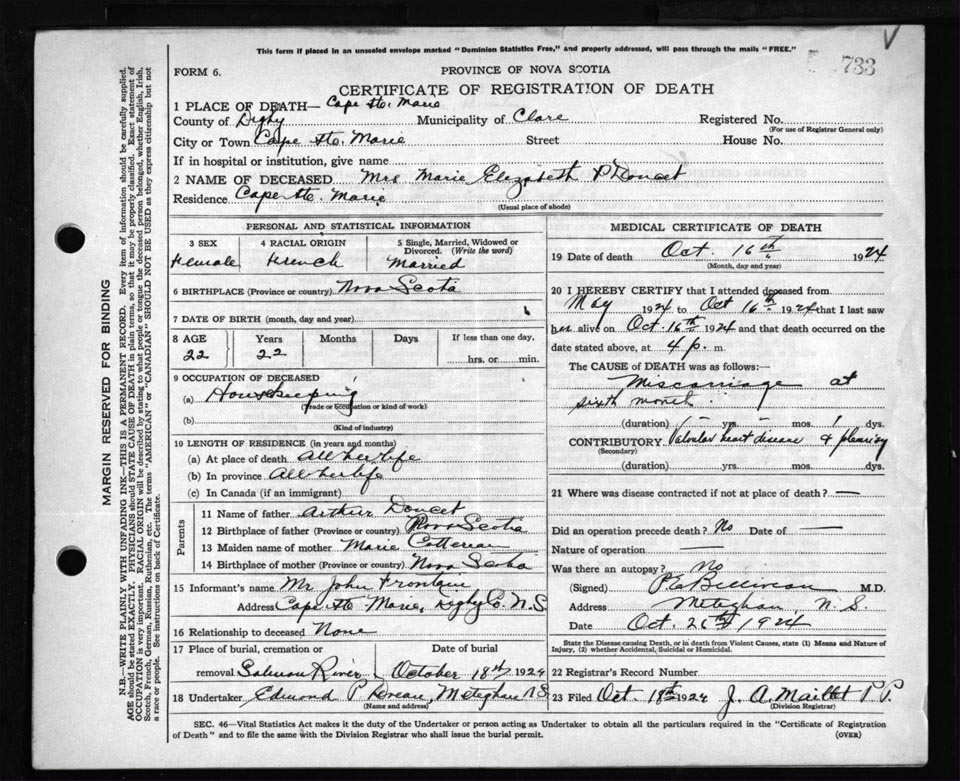 This form if placed in an unsealed envelope marked "Dominion Statistics Free," and properly addressed, will pass through the mails "FREE."
733
FORM 6.
PROVINCE OF NOVA SCOTIA
CERTIFICATE OF REGISTRATION OF DEATH
1 PLACE OF DEATH— Cape Ste. Marie
County of Digby Municipality of Clare Registered No.
(For use of Registrar General only)
City or Town Cape Ste. Marie Street House No.
If in hospital or institution, give name
2 NAME OF DECEASED Mrs Marie Elizabeth P Doucet
Residence Cape Ste. Marie
(Usual place of abode)
PERSONAL AND STATISTICAL INFORMATION
3 SEX 4 RACIAL ORIGIN 5 Single, Married, Widowed or Divorced. (Write the word)
Female French Married
6 BIRTHPLACE (Province or country) Nova Scotia
7 DATE OF BIRTH (month, day and year)
8 AGE Years Months Days If less than one day,
22 22 hrs. or min.
9 OCCUPATION OF DECEASED
(a) Housekeeping
(Trade or occupation or kind of work)
(b)
(Kind of industry)
10 LENGTH OF RESIDENCE (in years and months)
(a) At place of death All her life
(b) In province All her life
(c) In Canada (if an immigrant)
Parents
11 Name of father Arthur Doucet
12 Birthplace of father (Province or country) Nova Scotia
13 Maiden name of mother Marie
14 Birthplace of mother (Province or country) Nova Scotia
15 Informant's name Mr John
Address Cape Ste Marie, Digby Co. N.S.
16 Relationship to deceased None
17 Place of burial, cremation or Date of burial
removal Salmon River October 18th 1924
18 Undertaker Edmond P. Meteghan N.S.
(Name and address)
MEDICAL CERTIFICATE OF DEATH
19 Date of death Oct. 16th 1924
(Month, day and year)
20 I HEREBY CERTIFY that I attended deceased from
May 1924 to Oct 16th 1924 that I last saw
her alive on Oct. 16th 1924 and that death occurred on the
date stated above, at 4 p. m.
The CAUSE of DEATH was as follows:—
Miscarriage at
sixth month.
(duration) yrs. mos. 1 dys.
CONTRIBUTORY Valvular heart disease & pleurisy
(Secondary)
(duration) yrs. mos. dys.
21 Where was disease contracted if not at place of death? —
Did an operation precede death? No Date of —
Nature of operation —
Was there an autopsy? No
(Signed) M.D.
Address Meteghan, N.S.
Date Oct. 1924
State the Disease causing Death, or in death from Violent Causes, state (1) Means and Nature of
Injury, (2) whether Accidental, Suicidal or Homicidal.
22 Registrar's Record Number
23 Filed Oct. 18th 1924 J. A. Maillet P.P.
(Division Registrar)
SEC. 46—Vital Statistics Act makes it the duty of the Undertaker or person acting as Undertaker to obtain all the particulars required in the "Certificate of Registration
of Death" and to file the same with the Division Registrar who shall issue the burial permit.
(OVER)
MARGIN RESERVED FOR BINDING
N.B.—WRITE PLAINLY WITH UNFADING INK—THIS IS A PERMANENT RECORD. Every item of information should be carefully supplied.
AGE should be stated EXACTLY. PHYSICIANS should STATE CAUSE OF DEATH in plain terms, so that it may be properly classified. Exact statement of
OCCUPATION is very important. RACIAL ORIGIN will be described by stating to what people or tongue the deceased person belonged, whether English, Irish,
Scotch, French, German, Russian, Ruthenian, etc. The terms "AMERICAN" or "CANADIAN" SHOULD NOT BE USED as they express citizenship but not
a race or people. See instructions on back of Certificate.